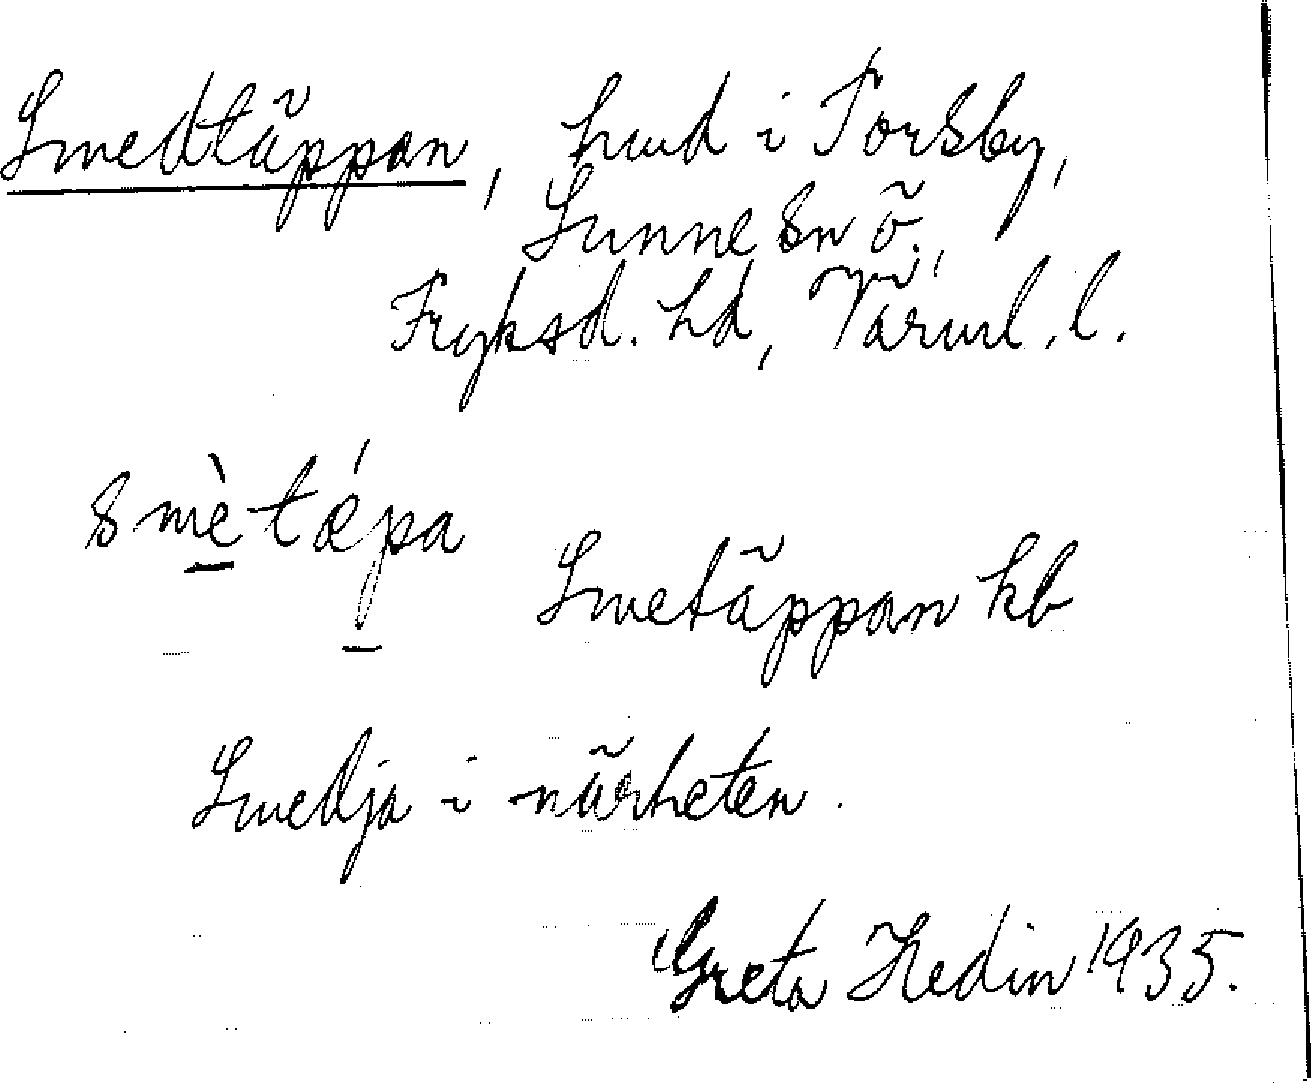 Smedtäppan, hmd i Torsby,
Sunne sn ö.,
Fryksd. hd, Värml. l.
smètǽpa
Smetäppan kb
Smedja i närheten.
Greta Hedin 1935.